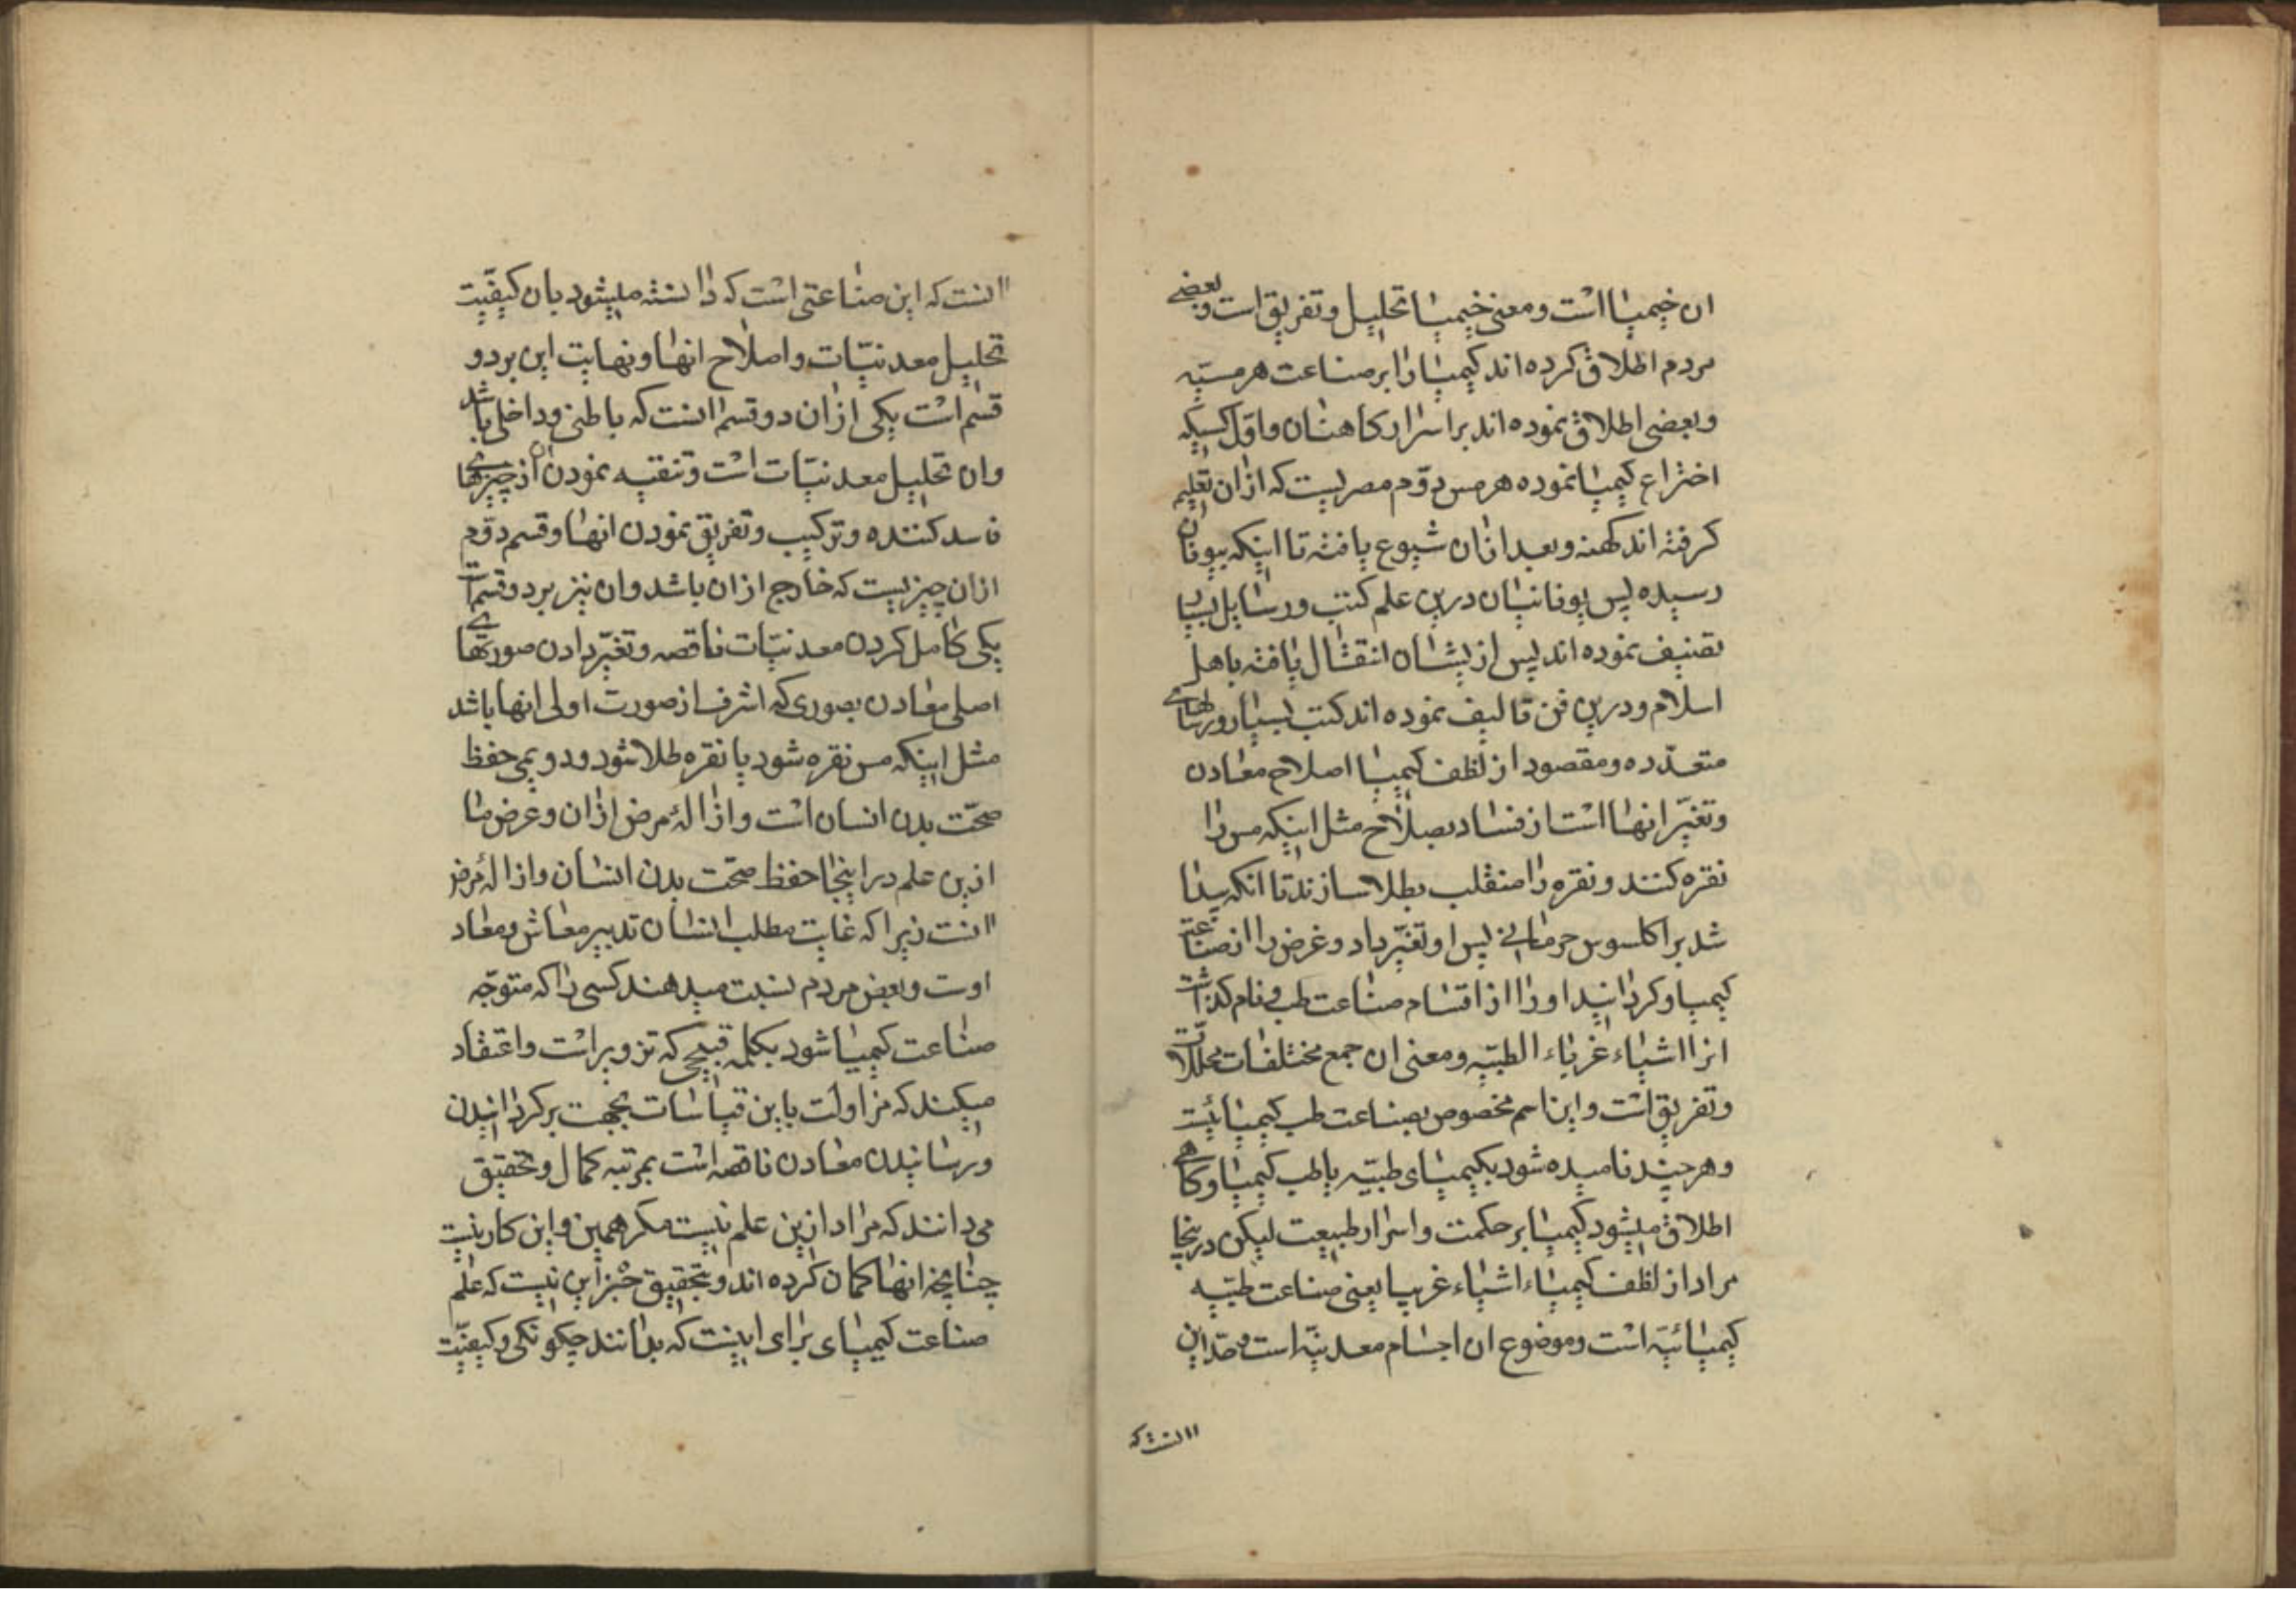 ان خیمیا است و معنی خیمیا تحلیل و تفریق است و بعضے
مردم اطلاق کرده اند کیمیا را بر صناعت هرمسیّه
و بعضی اطلاق نموده اند بر اسرار کاهنان و اوّل کسیکه
اختراع کیمیا نموده هرمس دوّم مصریست که ازان تعلیم
کرفته اند کهنه و بعد ازان شیوع یافته تا اینکه بیونان
رسیده پس یونانیان درین علم کتب و رسایل بسیار
تصنیف نموده اند پس از یشان انتقال یافته باهل
اسلام و درین فن تالیف نموده اند کتب بسیار و رسالهاے
متعدّده و مقصود از لفظ کیمیا اصلاح معادن
و تغیّر انها است از فساد بصلاح مثل اینکه مس را
نقره کنند و نقره را منقلب بطلا سازند تا انکه پیدا
شد براکلسوس جرمانی پس او تغیّر داد و غرض را از صناعت
کیمیا و کردانید او را از اقسام صناعت طب و نام کذاشت
انرا اشیاء غریاء الطبیّه و معنی ان جمع مختلفات محللات
و تفریق است و این اسم مخصوص بصناعت طب کیمیائیت
و هرچند نامیده شود بکیمیای طبیّه یا طب کیمیا و کاهے
اطلاق میشود کیمیا بر حکمت و اسرار طبیعت لیکن درینجا
مراد از لفظ کیمیاء اشیاء غریبا یعنی صناعت طبیّه
کیمیائیّه است و موضوع ان اجسام معدنیّه است و حد این
اانست که
اانست که این صناعتی است که دانسته میشود بان کیفیّت
تحلیل معدنیّات و اصلاح انها و نهایت این بر دو
قسم است یکی ازان دو قسم انست که باطنی و داخلی باشد
وان تحلیل معدنیّات است و تنقیه نمودن ان از چیزهاے
فاسد کننده و ترکیب و تفریق نمودن انها و قسم دوّم
ازان چیزیست که خارج ازان باشد وان نیز بر دو قسم است
یکی کامل کردن معدنیّات ناقصه و تغیّر دادن صورتهاے
اصلی معادن بصوری که اشرف از صورت اولی انها باشد
مثل اینکه مس نقره شود یا نقره طلا شود و دویمی حفظ
صحّت بدن انسان است و ازالهٔ مرض ازان و غرض ما
ازین علم در اینجا حفظ صحّت بدن انسان و ازالهٔ مرض
اانست زیرا که غایت مطلب انسان تدبیر معاش و معاد
اوت و بعض مردم نسبت میدهند کسی را که متوجّه
صناعت کیمیا شود بکلمه قبیحی که تزویر است و اعتقاد
میکنند که مزاولت باین قیاسات بجهت برکردانیدن
و رسانیدن معادن ناقصه است بمرتبه کمال و تحقیق
می دانند که مراد ازین علم نیست مکر همین و این کار نیست
چنانچه انها کمان کرده اند و بتحقیق جز این نیست که علم
صناعت کیمیای برای اینست که بدانند چکونکی و کیفیّت